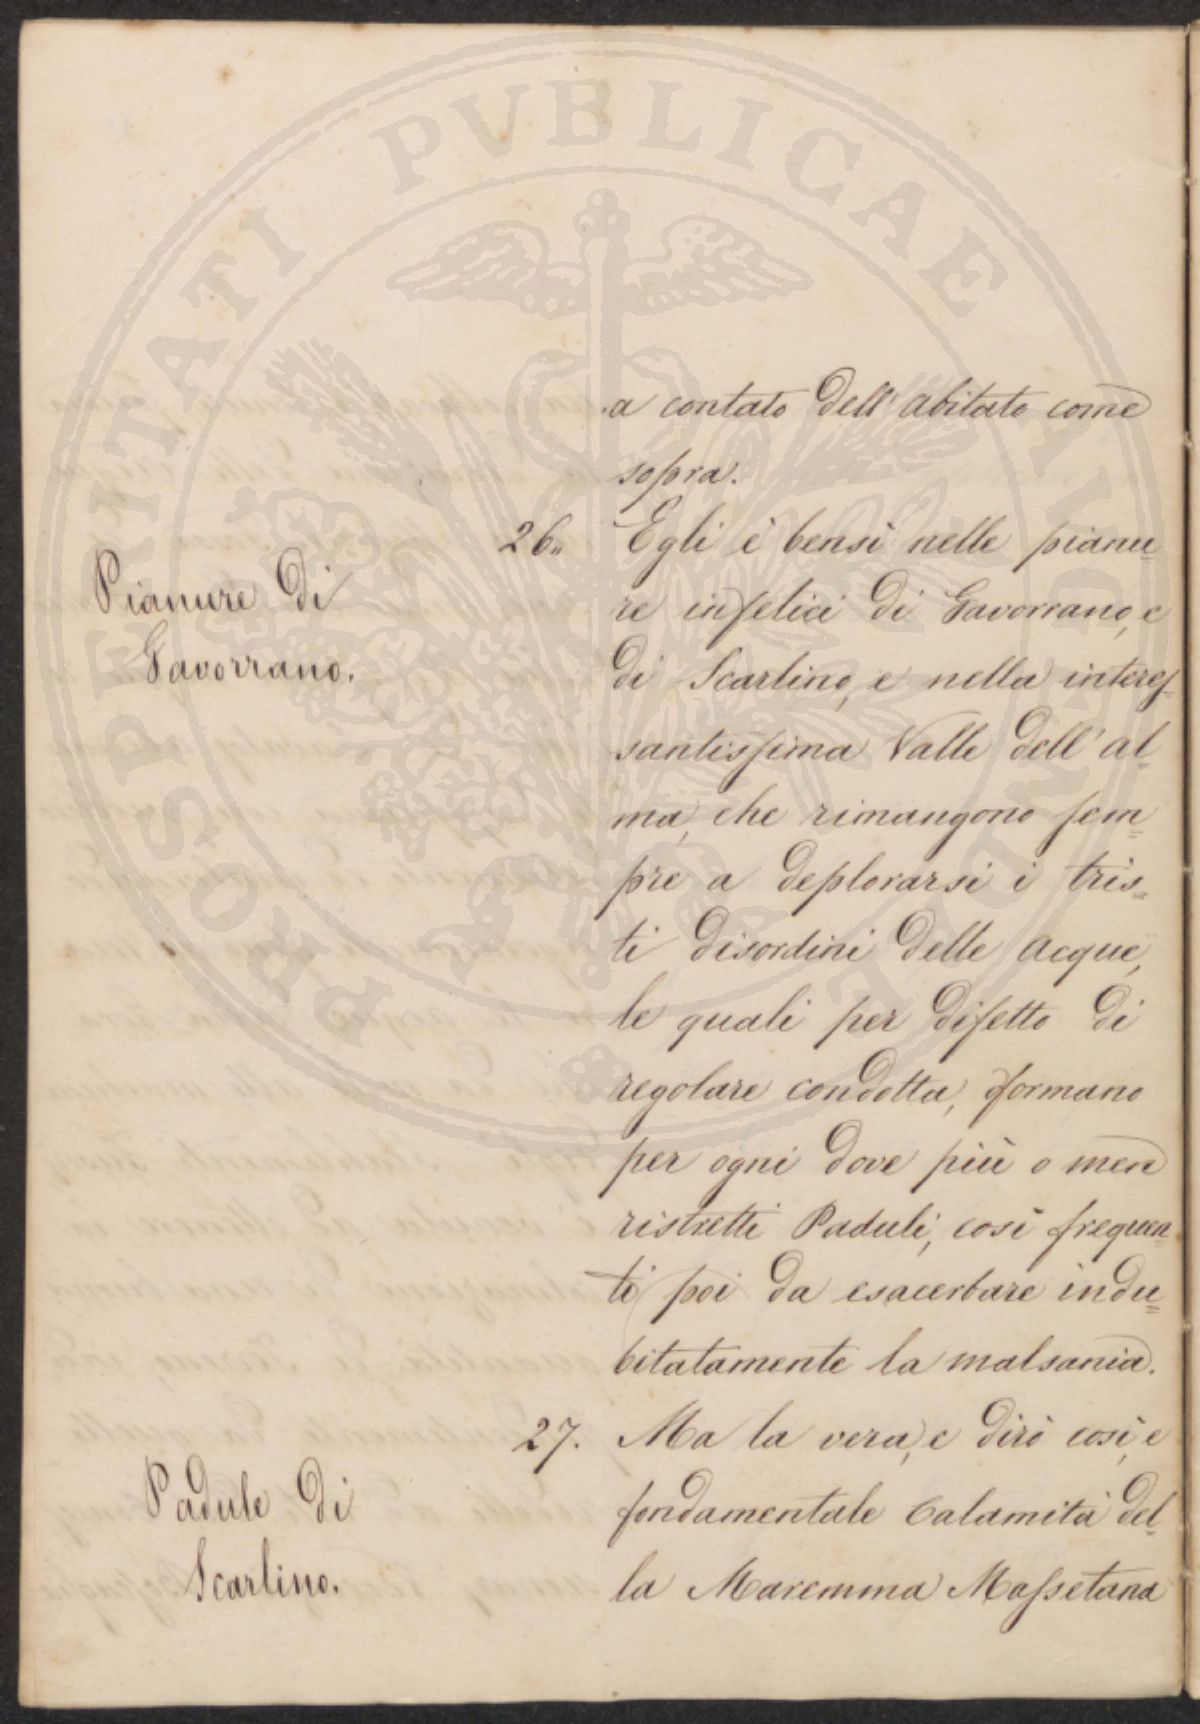 a contato dell'abitato come
sopra.
Pianure di
Gavorrano.
26. Egli è bensì nelle pianu=
re infelici di Gavorrano, e
di Scarlino, e nella interes-
santissima Valle dell'al-
ma, che rimangono sem=
pre a deplorarsi i tris=
ti disordini delle acque,
le quali per difetto di
regolare condotta, formano
per ogni dove più o men
ristretti Paduli, così frequen=
ti poi da esacerbare indu=
bitatamente la malsania.
Padule di
Scarlino.
27. Ma la vera, e dirò così, e
fondamentale Calamità del-
la Maremma Massetana
PROSPERITATI PVBLICAE AVGENDAE